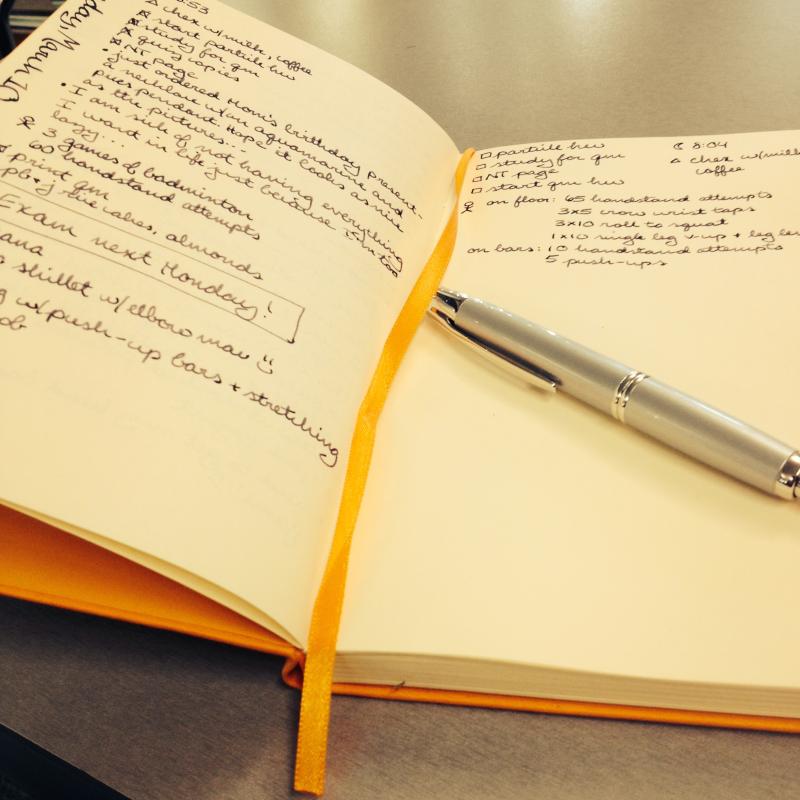 day, March 19
:53
△ chex w/milk, coffee
start particle hw
study for qm
quiz copies
NT page
• just ordered Mom's birthday present-
a necklace w/an aquamarine and
pendant. Hope it looks as nice
as the pictures...
• I am sick of not having everything
I want in life just because I'm too
lazy...
3 games of badminton
60 handstand attempts
print qm
pb+j rice cakes, almonds
Exam next Monday!
ana
skillet w/elbow mac
w/push-up bars + stretching
ob
□ particle hw
□ study for qm
□ NT page
□ start qm hw
☾ 8:04
△ chex w/milk
coffee
on floor: 65 handstand attempts
3x5 crow wrist taps
3x10 roll to squat
1x10 single leg v-up + leg
on bars: 10 handstand attempts
5 push-ups